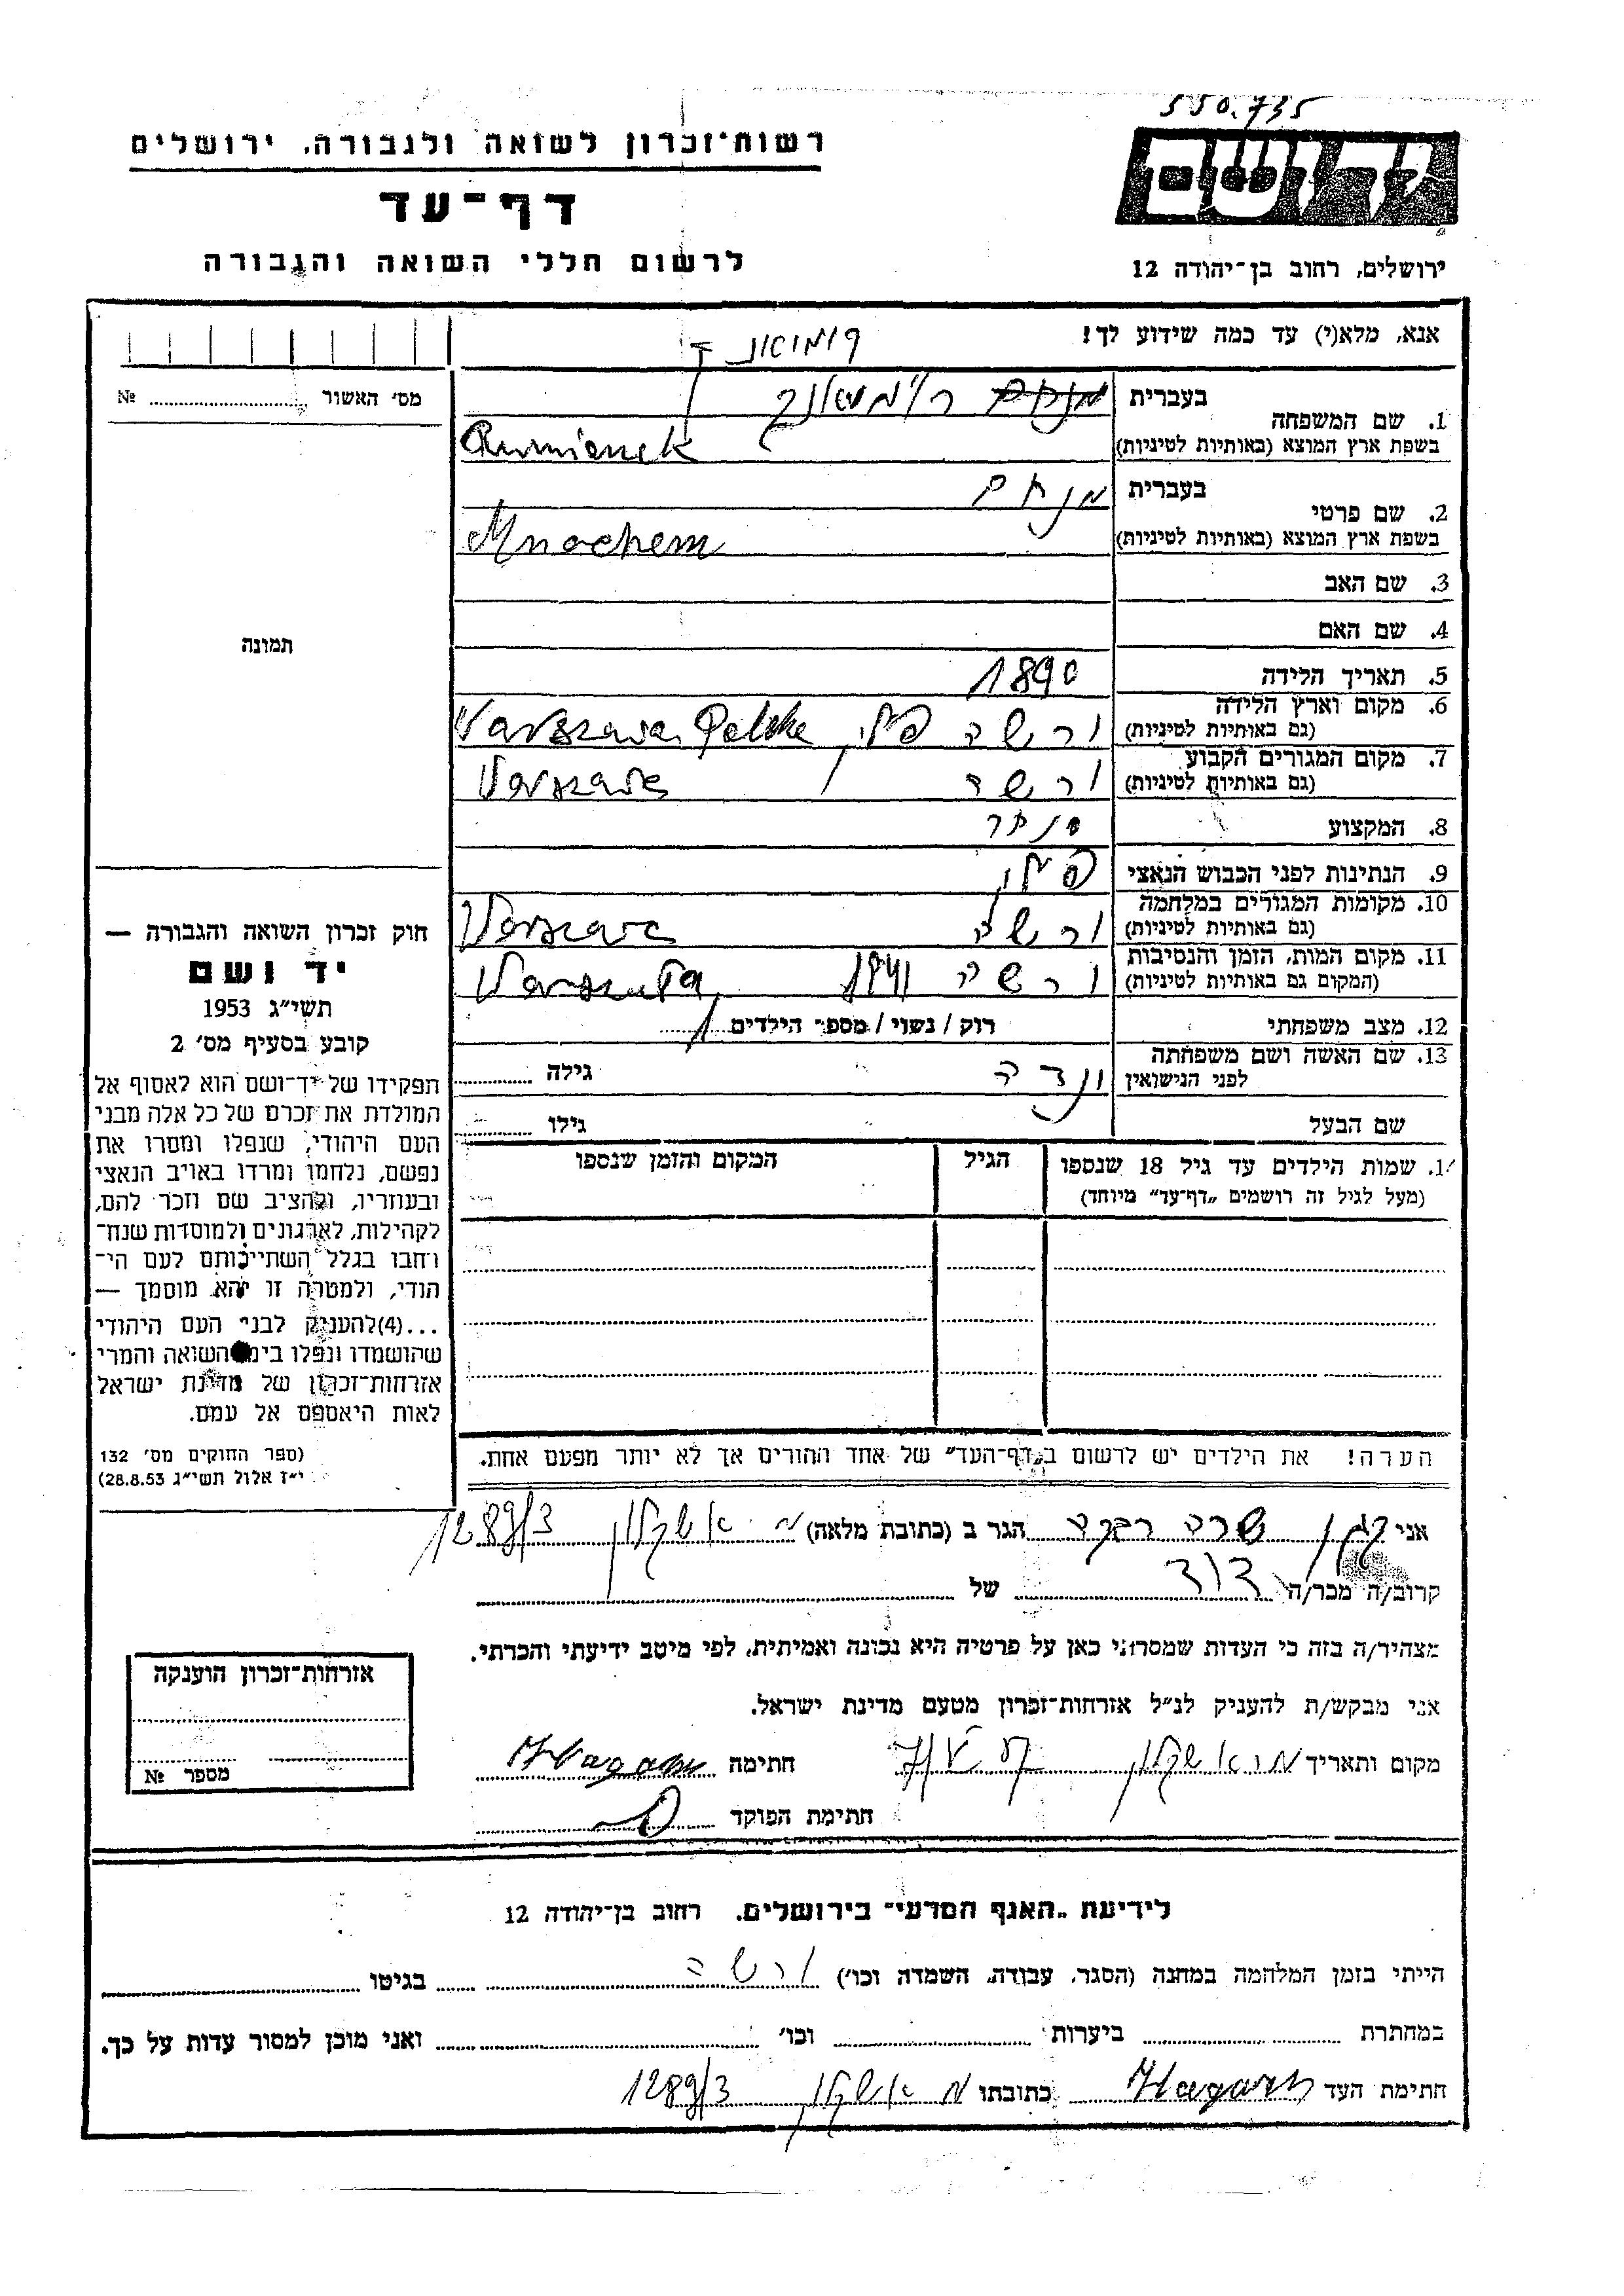 550.735
רשות־זכרון לשואה ולגבורה, ירושלים
יד ושם
דף־עד
לרשום חללי השואה והגבורה
ירושלים, רחוב בן־יהודה 12
אנא, מלא(י) עד כמה שידוע לך!
מס׳ האשור № 
1. שם המשפחה בעברית מנחם
בשפת ארץ המוצא (באותיות לטיניות)
2. שם פרטי בעברית מנחם
בשפת ארץ המוצא (באותיות לטיניות) Mnachem
3. שם האב
4. שם האם
תמונה
5. תאריך הלידה 1890
6. מקום וארץ הלידה (גם באותיות לטיניות) ורשה פולין Varszawa Polske
7. מקום המגורים הקבוע (גם באותיות לטיניות) ורשה
8. המקצוע סוחר
9. הנתינות לפני הכבוש הנאצי פולין
10. מקומות המגורים במלחמה (גם באותיות לטיניות) ורשה
11. מקום המות, הזמן והנסיבות (המקום גם באותיות לטיניות) ורשה 1941
12. מצב משפחתי רוק / נשוי / מספר הילדים 1
13. שם האשה ושם משפחתה לפני הנישואין גילה
שם הבעל גילו
שמות הילדים עד גיל 18 שנספו הגיל המקום והזמן שנספו
(מעל לגיל זה רושמים „דף־עד״ מיוחד)
חוק זכרון השואה והגבורה —
יד ושם
תשי״ג 1953
קובע בסעיף מס׳ 2
תפקידו של יד־ושם הוא לאסוף אל
המולדת את זכרם של כל אלה מבני
העם היהודי, שנפלו ומסרו את
נפשם, נלחמו ומרדו באויב הנאצי
ובעוזריו, ולהציב שם וזכר להם,
לקהילות, לארגונים ולמוסדות שנח־
רבו בגלל השתייכותם לעם הי־
הודי, ולמטרה זו יהא מוסמך —
...(4)להעניק לבני העם היהודי
שהושמדו ונפלו בימי השואה והמרי
אזרחות־זכרון של מדינת ישראל
לאות היאספם אל עמם.
(ספר החוקים מס׳ 132
י״ז אלול תשי״ג 28.8.53)
הערה! את הילדים יש לרשום ב„דף־העד״ של אחד ההורים אך לא יותר מפעם אחת.
אני שרה רבקה הגר ב (כתובת מלאה) אשקלון 1289/3
קרוב/ה מכר/ה דוד של
מצהיר/ה בזה כי העדות שמסרתי כאן על פרטיה היא נכונה ואמיתית, לפי מיטב ידיעתי והכרתי.
אני מבקש/ת להעניק לנ״ל אזרחות־זכרון מטעם מדינת ישראל.
מקום ותאריך אשקלון חתימה
חתימת הפוקד
אזרחות־זכרון הוענקה
מספר №
לידיעת „האגף המדעי״ בירושלים, רחוב בן־יהודה 12
הייתי בזמן המלחמה במחנה (הסגר, עבודה, השמדה וכו׳) ורשה בגיטו
במחתרת ביערות וכו׳ ואני מוכן למסור עדות על כך.
חתימת העד כתובתו אשקלון 1289/3